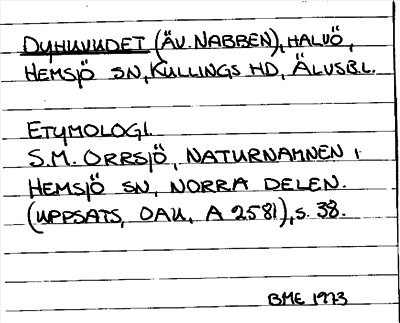 DYHUVUDET (ÄV. NABBEN), HALVÖ,
HEMSJÖ SN, KULLINGS HD, ÄLVSB.L.
ETYMOLOGI.
S.M. ORRSJÖ, NATURNAMNEN I
HEMSJÖ SN, NORRA DELEN.
(UPPSATS, OAU, A 2581), S. 38.
BME 1973